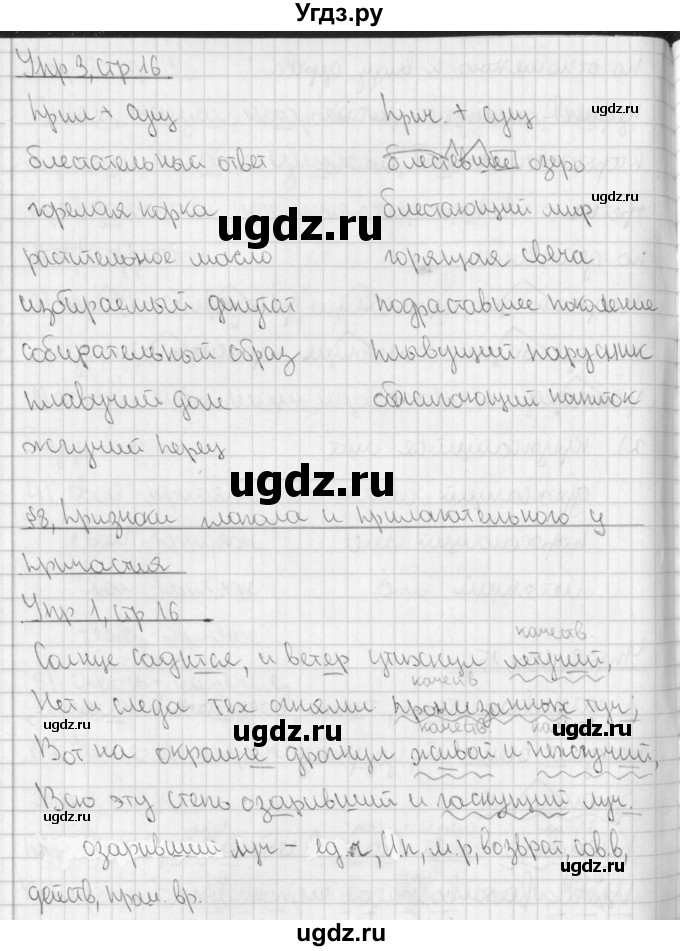 Угдз.ру
Упр 3, стр 16
Прил + сущ
Прич. + сущ
блестательный ответ
блестевшее озеро
горелая корка
блестающий мир
растительное масло
горящая свеча
избираемый депутат
подраставшее поколение
собирательный образ
плывущий парусник
плавучий дом
обжигающий напиток
жгучий перец
§8, Признаки глагола и прилагательного у
причастия
Упр 1, стр 16
качеств.
Солнце садится, и ветер утихнул летучий,
качеств
Нет и следа тех огнями пронизанных туч;
качеств. ка
Вот на окраине дрогнул живой и нежгучий,
Всю эту степь озаривший и гаснущий луч.
озаривший луч – ед.ч, И.п, м.р, возврат, сов.в,
действ, прош. вр.
ugdz.ru
ugdz.ru
ugdz.ru
ugdz.ru
ugdz.ru
ugdz.ru
ugdz.ru
ugdz.ru
ugdz.ru